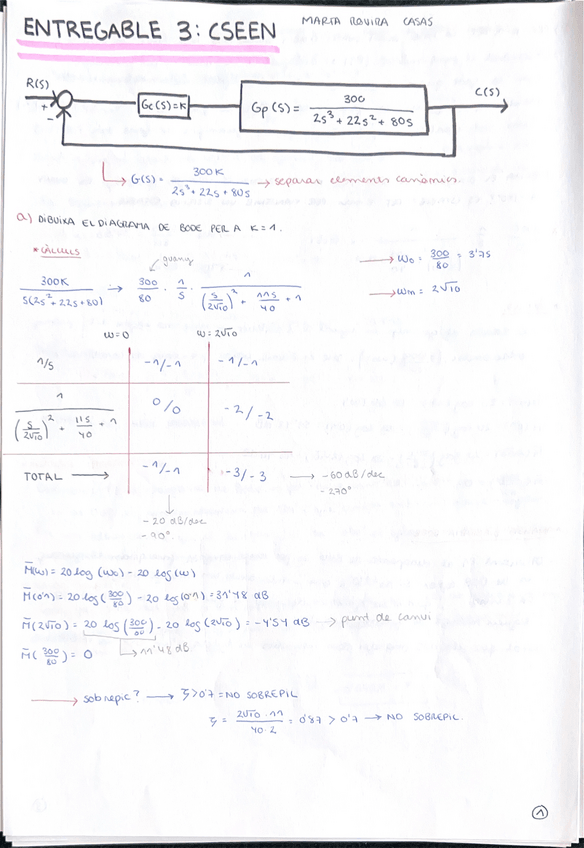 ENTREGABLE 3: CSEEN
MARTA ROVIRA CASAS
R(S)
+
-
Gc(S)=K
Gp(S) = 300 / 2s³+22s²+80s
C(S)
G(S) = 300K / 2s³+22s²+80s → separar elements canònics.
a) DIBUIXA EL DIAGRAMA DE BODE PER A K=1.
* CÀLCULS
guany
300K / s(2s²+22s+80) → 300/80 · 1/s · 1 / (s/2√10)² + 11s/40 + 1
→ ω0 = 300/80 = 3'75
→ ωm = 2√10
ω=0
ω=2√10
1/s
-1/-1
-1/-1
1 / (s/2√10)² + 11s/40 + 1
0/0
-2/-2
TOTAL →
-1/-1
-3/-3
→ -60 dB/dec
-270°
-20 dB/dec
-90°
M(ω) = 20 log (ω0) - 20 log (ω)
M(0'1) = 20 log(300/80) - 20 log (0'1) = 31'48 dB
M(2√10) = 20 log(300/80) - 20 log (2√10) = -4'54 dB → punt de canvi
M(300/80) = 0
11'48 dB
→ sobrepic? → ζ>0'7 = NO SOBREPIC
ζ = 2√10·11 / 40·2 = 0'87 > 0'7 → NO SOBREPIC.
1